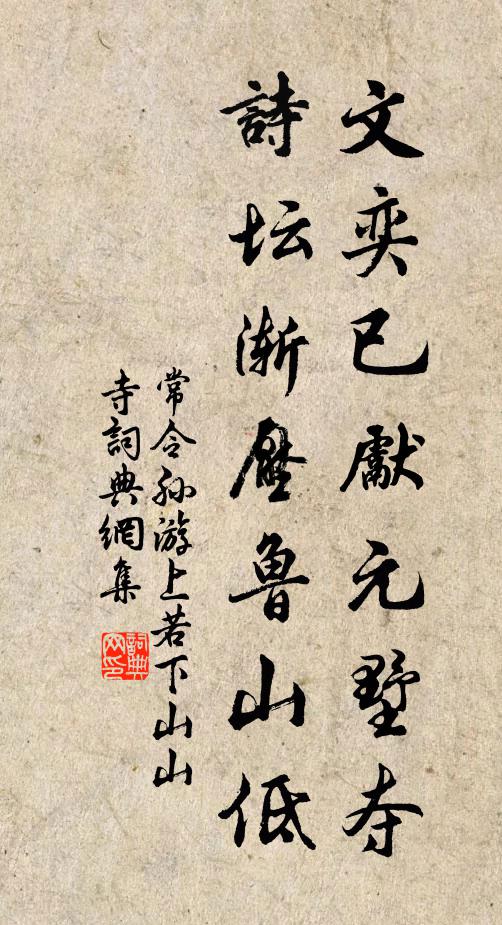 文奕已獻元墅夺
詩坛渐壓魯山低
常令孙游上若下山山
寺詞典網集
詞典网印